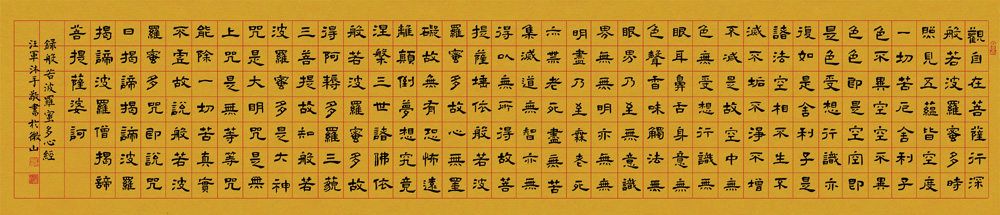 觀自在菩薩行深
般若波羅蜜多時
照見五蘊皆空度
一切苦厄舍利子
色不異空空不異
色色即是空空即
是色受想行識亦
復如是舍利子是
諸法空相不生不
滅不垢不淨不增
不減是故空中無
色無受想行識無
眼耳鼻舌身意無
色聲香味觸法無
眼界乃至無意識
界無無明亦無無
明盡乃至無老死
亦無老死盡無苦
集滅道無智亦無
得以無所得故菩
提薩埵依般若波
羅蜜多故心無罣
礙故無有恐怖遠
離顛倒夢想究竟
涅槃三世諸佛依
般若波羅蜜多故
得阿耨多羅三藐
三菩提故知般若
波羅蜜多是大神
咒是大明咒是無
上咒是無等等咒
能除一切苦真實
不虛故說般若波
羅蜜多咒即說咒
曰揭諦揭諦波羅
揭諦波羅僧揭諦
菩提薩婆訶
錄般若波羅蜜多心經
汪軍沐手敬書於徽山